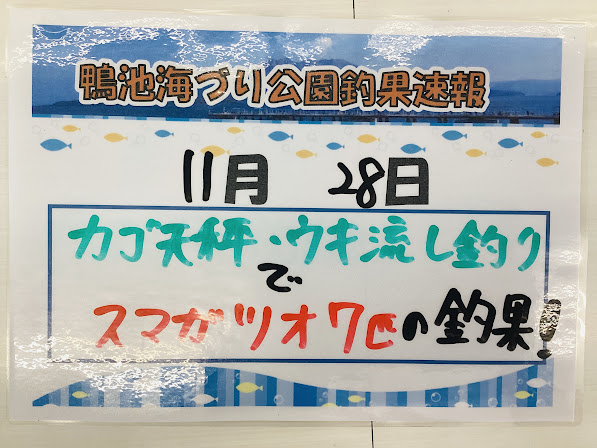 鴨池海づり公園釣果速報
11月 28日
カゴ天秤・ウキ流し釣り
で
スマガツオ7匹の釣果!